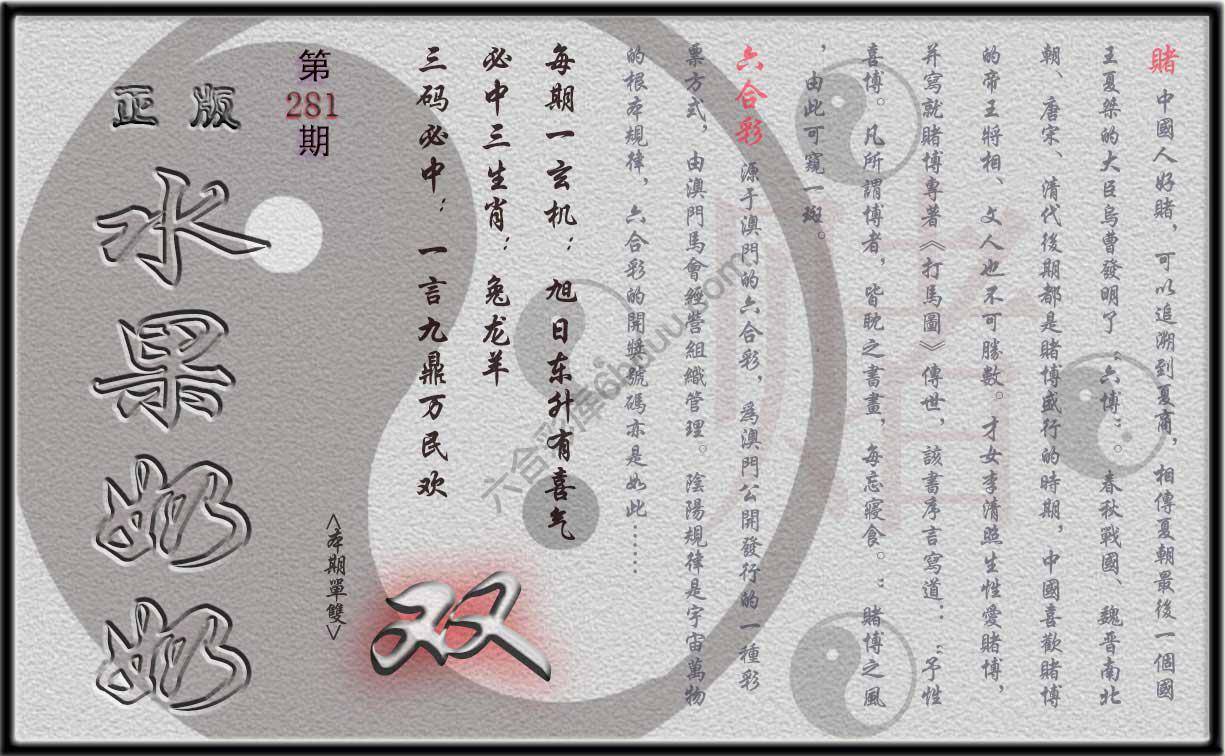 賭 中國人好賭，可以追溯到夏商，相傳夏朝最後一個國
王夏桀的大臣烏曹發明了“六博”。春秋戰國、魏晋南北
朝、唐宋、清代後期都是賭博盛行的時期，中國喜歡賭博
的帝王將相、文人也不可勝數。才女李清照生性愛賭博，
并寫就賭博專著《打馬圖》傳世，該書序言寫道：“予性
喜博。凡所謂博者，皆耽之書畫，每忘寢食。” 賭博之風
，由此可窺一斑。
六合彩 源于澳門的六合彩，爲澳門公開發行的一種彩
票方式，由澳門馬會經營組織管理。陰陽規律是宇宙萬物
的根本規律，六合彩的開獎號碼亦是如此……
每期一玄机：旭日东升有喜气
必中三生肖：兔龙羊
三码必中：一言九鼎万民欢
第
281
期
<本期單雙>
双
正版
水果奶奶
賭
六合彩库6huuu.com